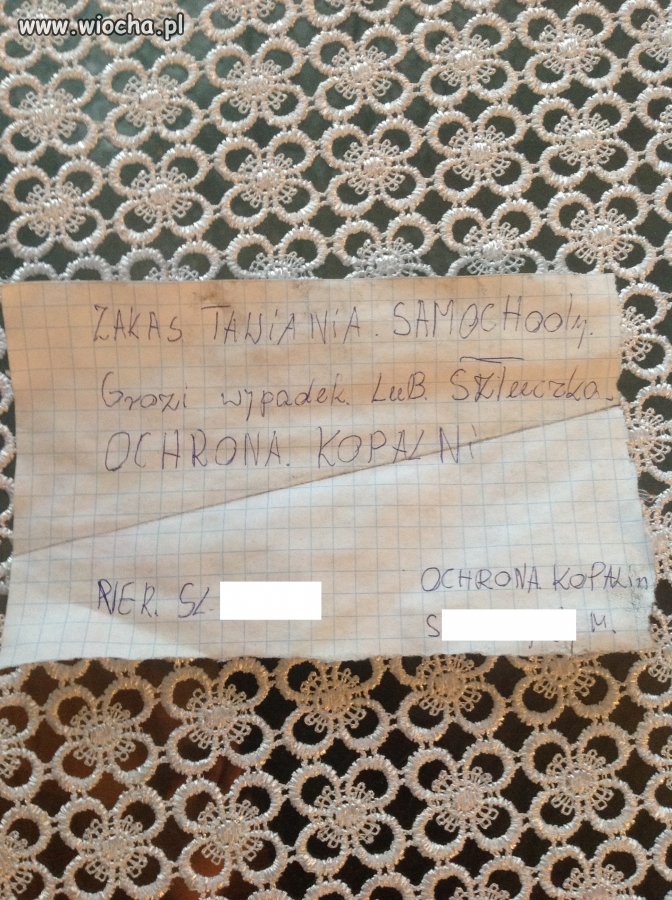 www.wiocha.pl
ZAKAS TAWIANIA. SAMOCHOdy.
Grozi wypadek. LuB. SZTuczka.
OCHRONA. KOPALNi
NER. SŁ.
OCHRONA. KOPALiN
S M.